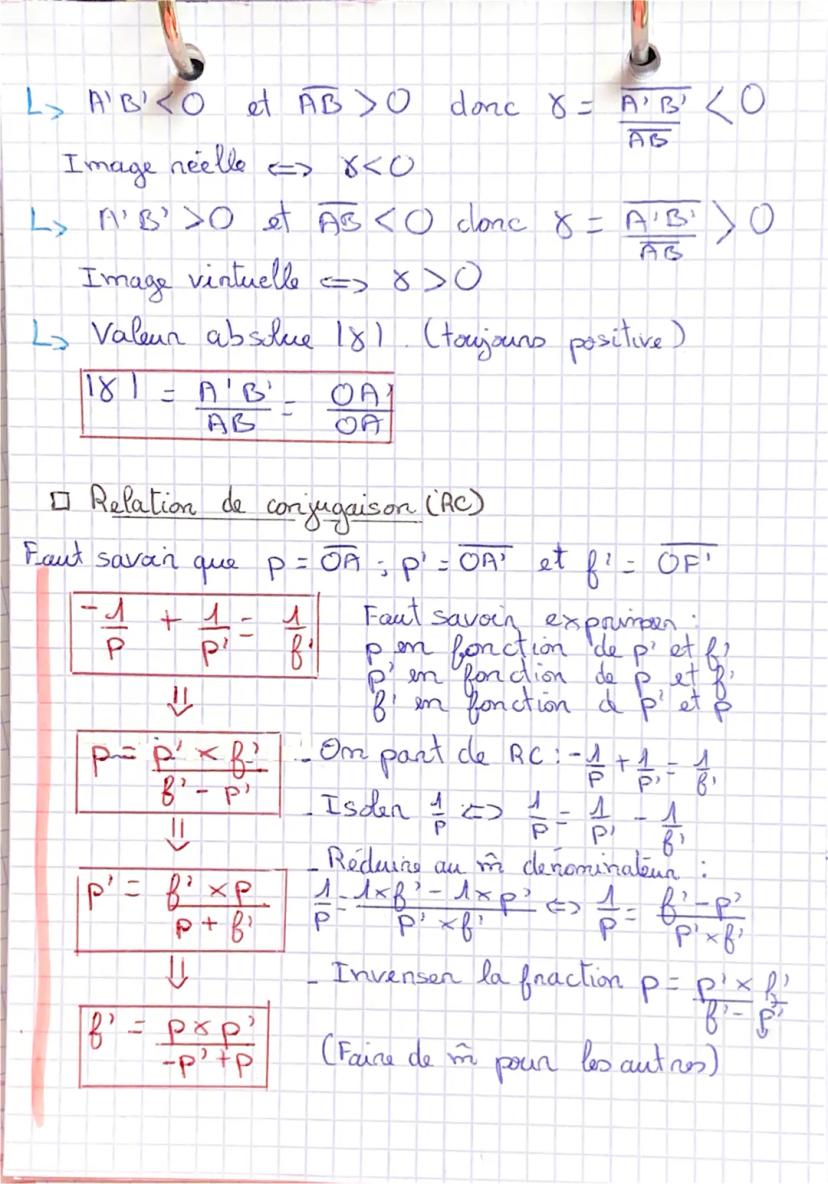 ↳ A'B' < 0 et A̅B̅ > 0 donc γ = A̅'̅B̅'̅ / A̅B̅ < 0
Image réelle <=> γ < 0
↳ A'B' > 0 et A̅B̅ < 0 donc γ = A̅'̅B̅'̅ / A̅B̅ > 0
Image virtuelle <=> γ > 0
↳ Valeur absolue |γ|. (toujours positive)
|γ| = A'B' / AB = OA' / OA
□ Relation de conjugaison (RC)
Faut savoir que p = O̅A̅ ; p' = O̅A̅'̅ et f' = O̅F̅'̅
-1/p + 1/p' = 1/f'
Faut savoir exprimer :
p en fonction de p' et f'
p' en fonction de p et f'
f' en fonction d p' et p
⇓
p = p' × f' / f' - p'
⇓
p' = f' × p / p + f'
⇓
f' = p × p' / -p' + p
- On part de RC : -1/p + 1/p' = 1/f'
- Isoler 1/p <=> 1/p = 1/p' - 1/f'
- Réduire au m̂ dénominateur :
1/p = 1×f' - 1×p' / p' × f' <=> 1/p = f' - p' / p' × f'
- Inverser la fraction p = p' × f' / f' - p'
(Faire de m̂ pour les autres)